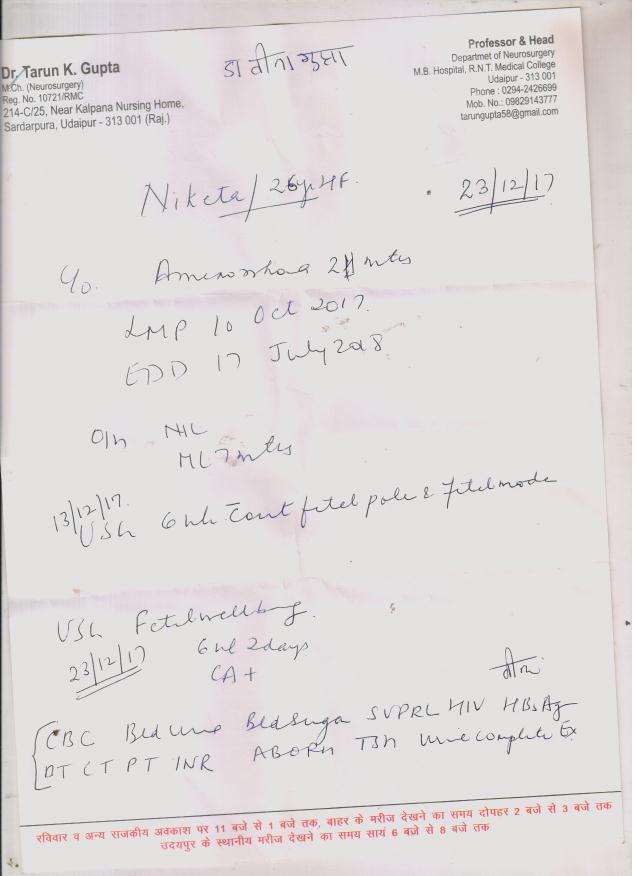 Dr. Tarun K. Gupta
M.Ch. (Neurosurgery)
Reg. No. 10721/RMC
214-C/25, Near Kalpana Nursing Home,
Sardarpura, Udaipur - 313 001 (Raj.)
डा वीना गुप्ता
Professor & Head
Departmet of Neurosurgery
M.B. Hospital, R.N.T. Medical College
Udaipur - 313 001
Phone : 0294-2426699
Mob. No.: 09829143777
tarungupta58@gmail.com
Niketa / 26yr HF.
23/12/17
Amenorrhoea 2 mths
LMP 10 Oct 2017
EDD 17 July 2018
O/h NIL
ML 7 mths
13/12/17.
USG 6 wk fetal pole & fetal node
USG Fetal wellbeing.
23/12/17
6 wk 2 days
CA +
CBC Bld Urea Bld Suga HIV HBsAg
BT CT PT INR ABORh TSH Urine complete Ex
रविवार व अन्य राजकीय अवकाश पर 11 बजे से 1 बजे तक, बाहर के मरीज देखने का समय दोपहर 2 बजे से 3 बजे तक
उदयपुर के स्थानीय मरीज देखने का समय सायं 6 बजे से 8 बजे तक